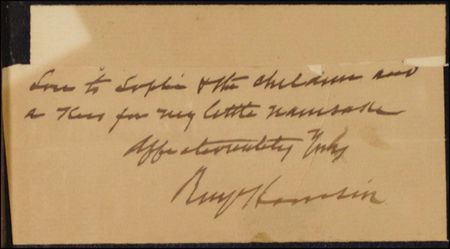 Love to Sophie & the children and
a Kiss for my little namesake
Affectionately Yrs
Benj Hamlin